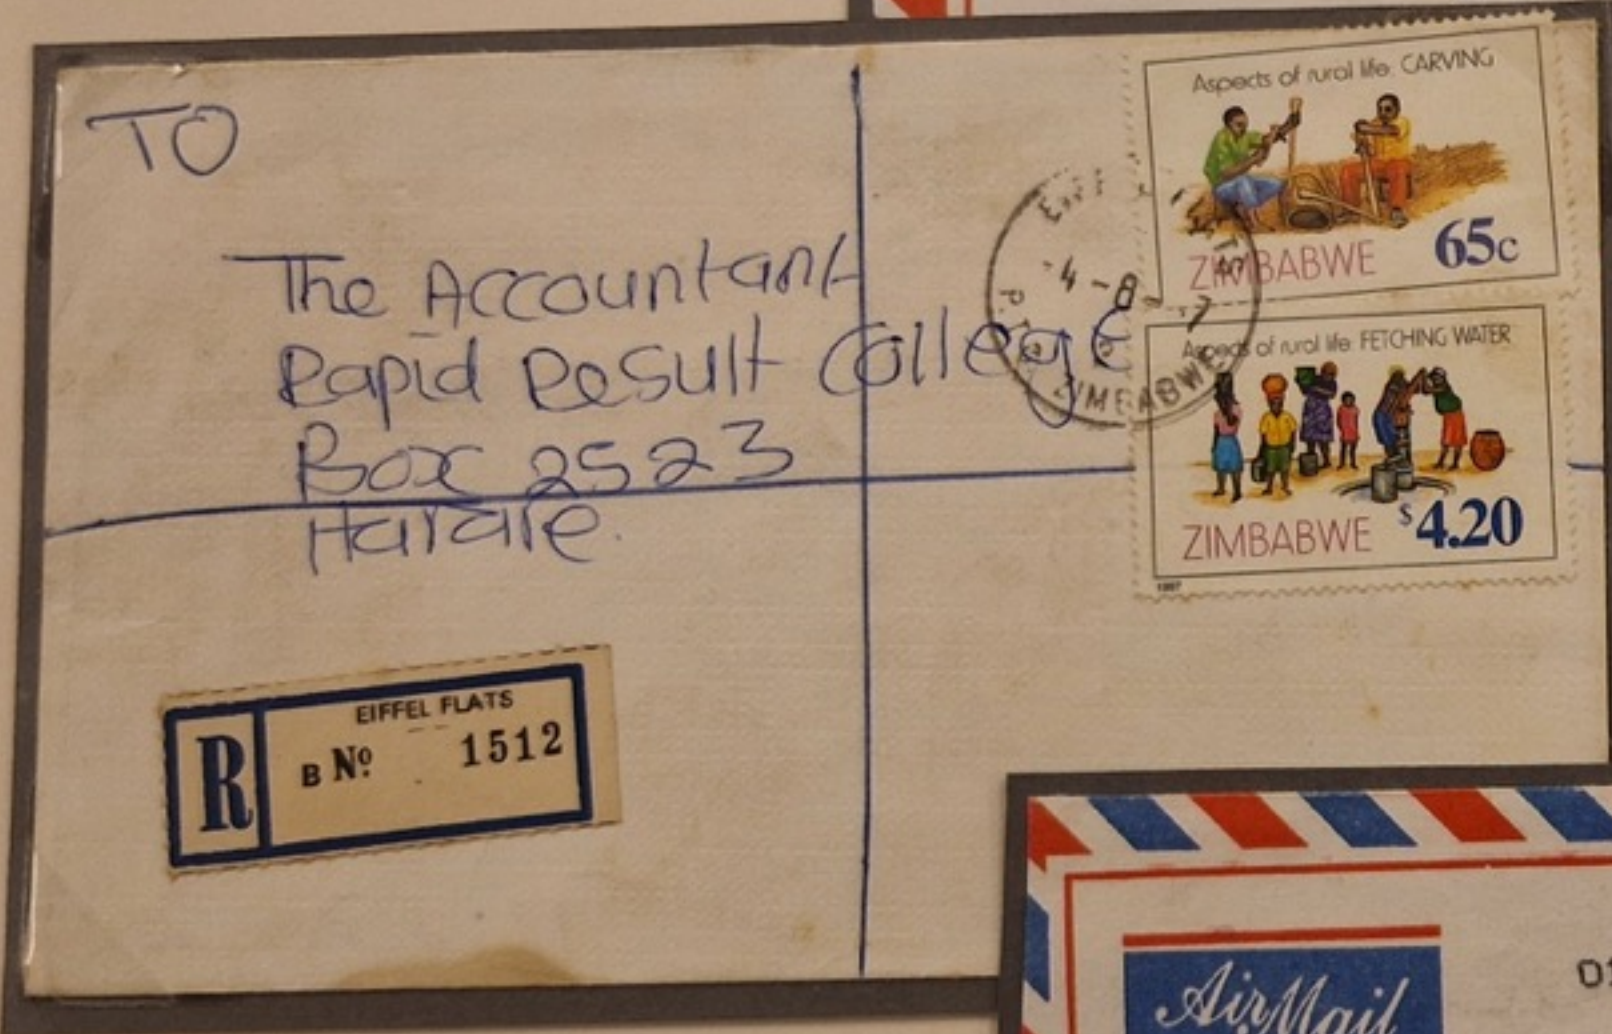 TO
The Accountant
Rapid Result College
Box 2523
Harare.
Aspects of rural life: CARVING
ZIMBABWE 65c
-4 -8
ZIMBABWE
Aspects of rural life: FETCHING WATER
ZIMBABWE $4.20
1997
EIFFEL FLATS
R B Nº 1512
Air Mail